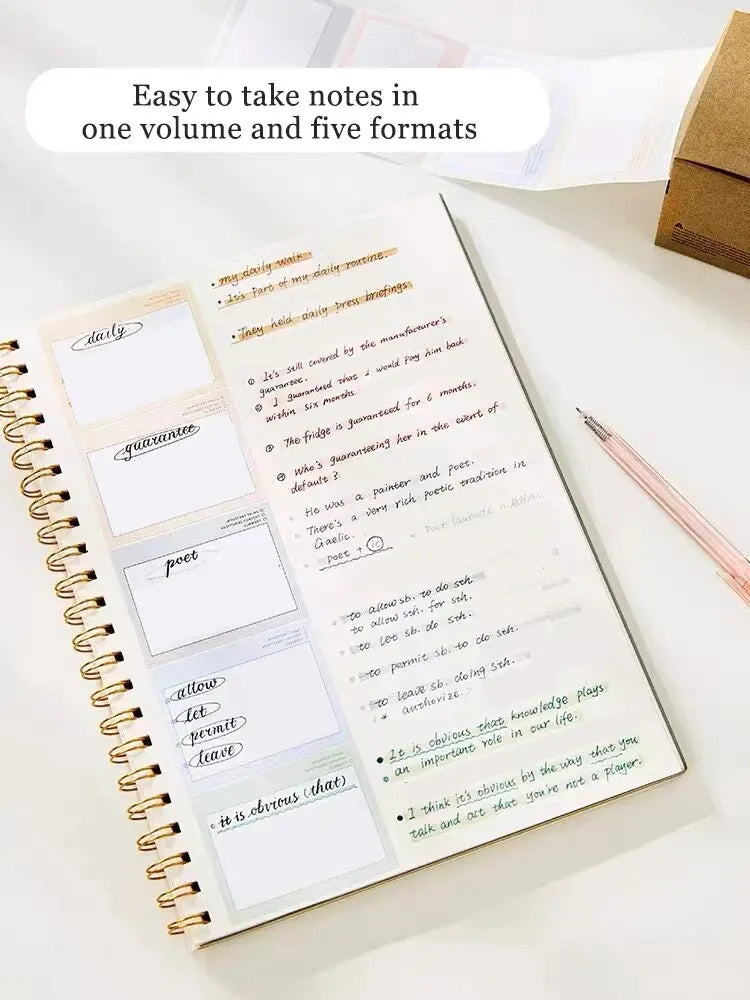 Easy to take notes in
one volume and five formats
daily
my daily walk
It's part of my daily routine.
They held daily press briefings
guarantee
① It's still covered by the manufacturer's
guarantee.
② I guaranteed that I would pay him back
within six months.
③ The fridge is guaranteed for 6 months.
④ Who's guaranteeing her in the event of
default?
IMPORTANT THING
ADDITIONAL CONTENT
SUMMARY
poet
He was a painter and poet.
There's a very rich poetic tradition in
Gaelic.
poet + ic
Poet laureate n.
allow
let
permit
leave
to allow sb. to do sth.
to allow sth. for sth.
to let sb. do sth.
to permit sb. to do sth.
to leave sb. doing sth.
(* authorize.)
it is obvious (that)
It is obvious that knowledge plays
an important role in our life.
I think it's obvious by the way that you
talk and act that you're not a player.